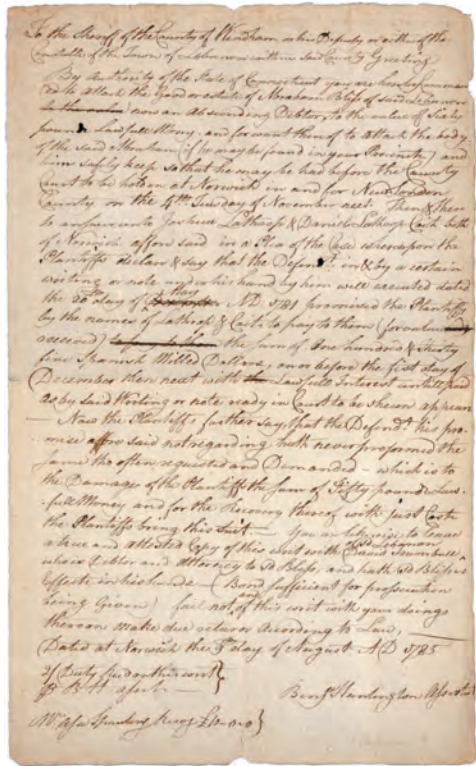 To the Sheriff of the County of Windham or his Deputy or either of the
Constables of the Town of Lebanon within said County Greeting
By Authority of the State of Connecticut you are hereby Command
ed to attach the Goods or estate of Abraham Bliss of said Lebanon
now an Absconding Debtor, to the value of Sixty
pounds Lawfull Mony, and for want thereof to attach the body
of the said Abraham (if he may be found in your Precincts) and
him safely keep so that he may be had before the County
Court to be holden at Norwich in and for New London
County on the 4th Tuesday of November next. Then & there
to answer unto Joshua Lathrop & Daniel Lathrop Coit both
of Norwich afforesaid in a Plea of the Case whereupon the
Plantiffs declare & say that the Defendt. in & by a certain
writing or note under his hand by him well executed dated
the day of May AD 1781 promised the Plantiffs
by the names of Lathrop & Coit to pay to them (for value
received) the sum of One hundred & thirty
five Spanish Milled Dollars, on or before the first day of
December then next with Lawfull Interest untill paid
as by said Writing or note ready in Court to be shewn appears
— Now the Plantiffs further say, that the Defendt. his pro-
mise afforesaid not regarding, hath never preformed the
same tho often requested and Demanded — which is to
the Damage of the Plantiffs the sum of Fifty pounds Law-
full Money and for the Recovery thereof with Just Costs
the Plantiffs bring this Suit — You are likewise to leave
a true and attested Copy of this writ with David Trumbull
of sd Lebanon
who is Debtor and Attorney to sd Bliss, and hath sd Bliss's
Effects in his hands — (Bond sufficient for prosecution
being Given) fail not, and of this writ with your doings
thereon make due return According to Law, —
Dated at Norwich the 5th day of August AD 1785
2/ Duty paid on this writ
Benj Huntington
Mr Asa